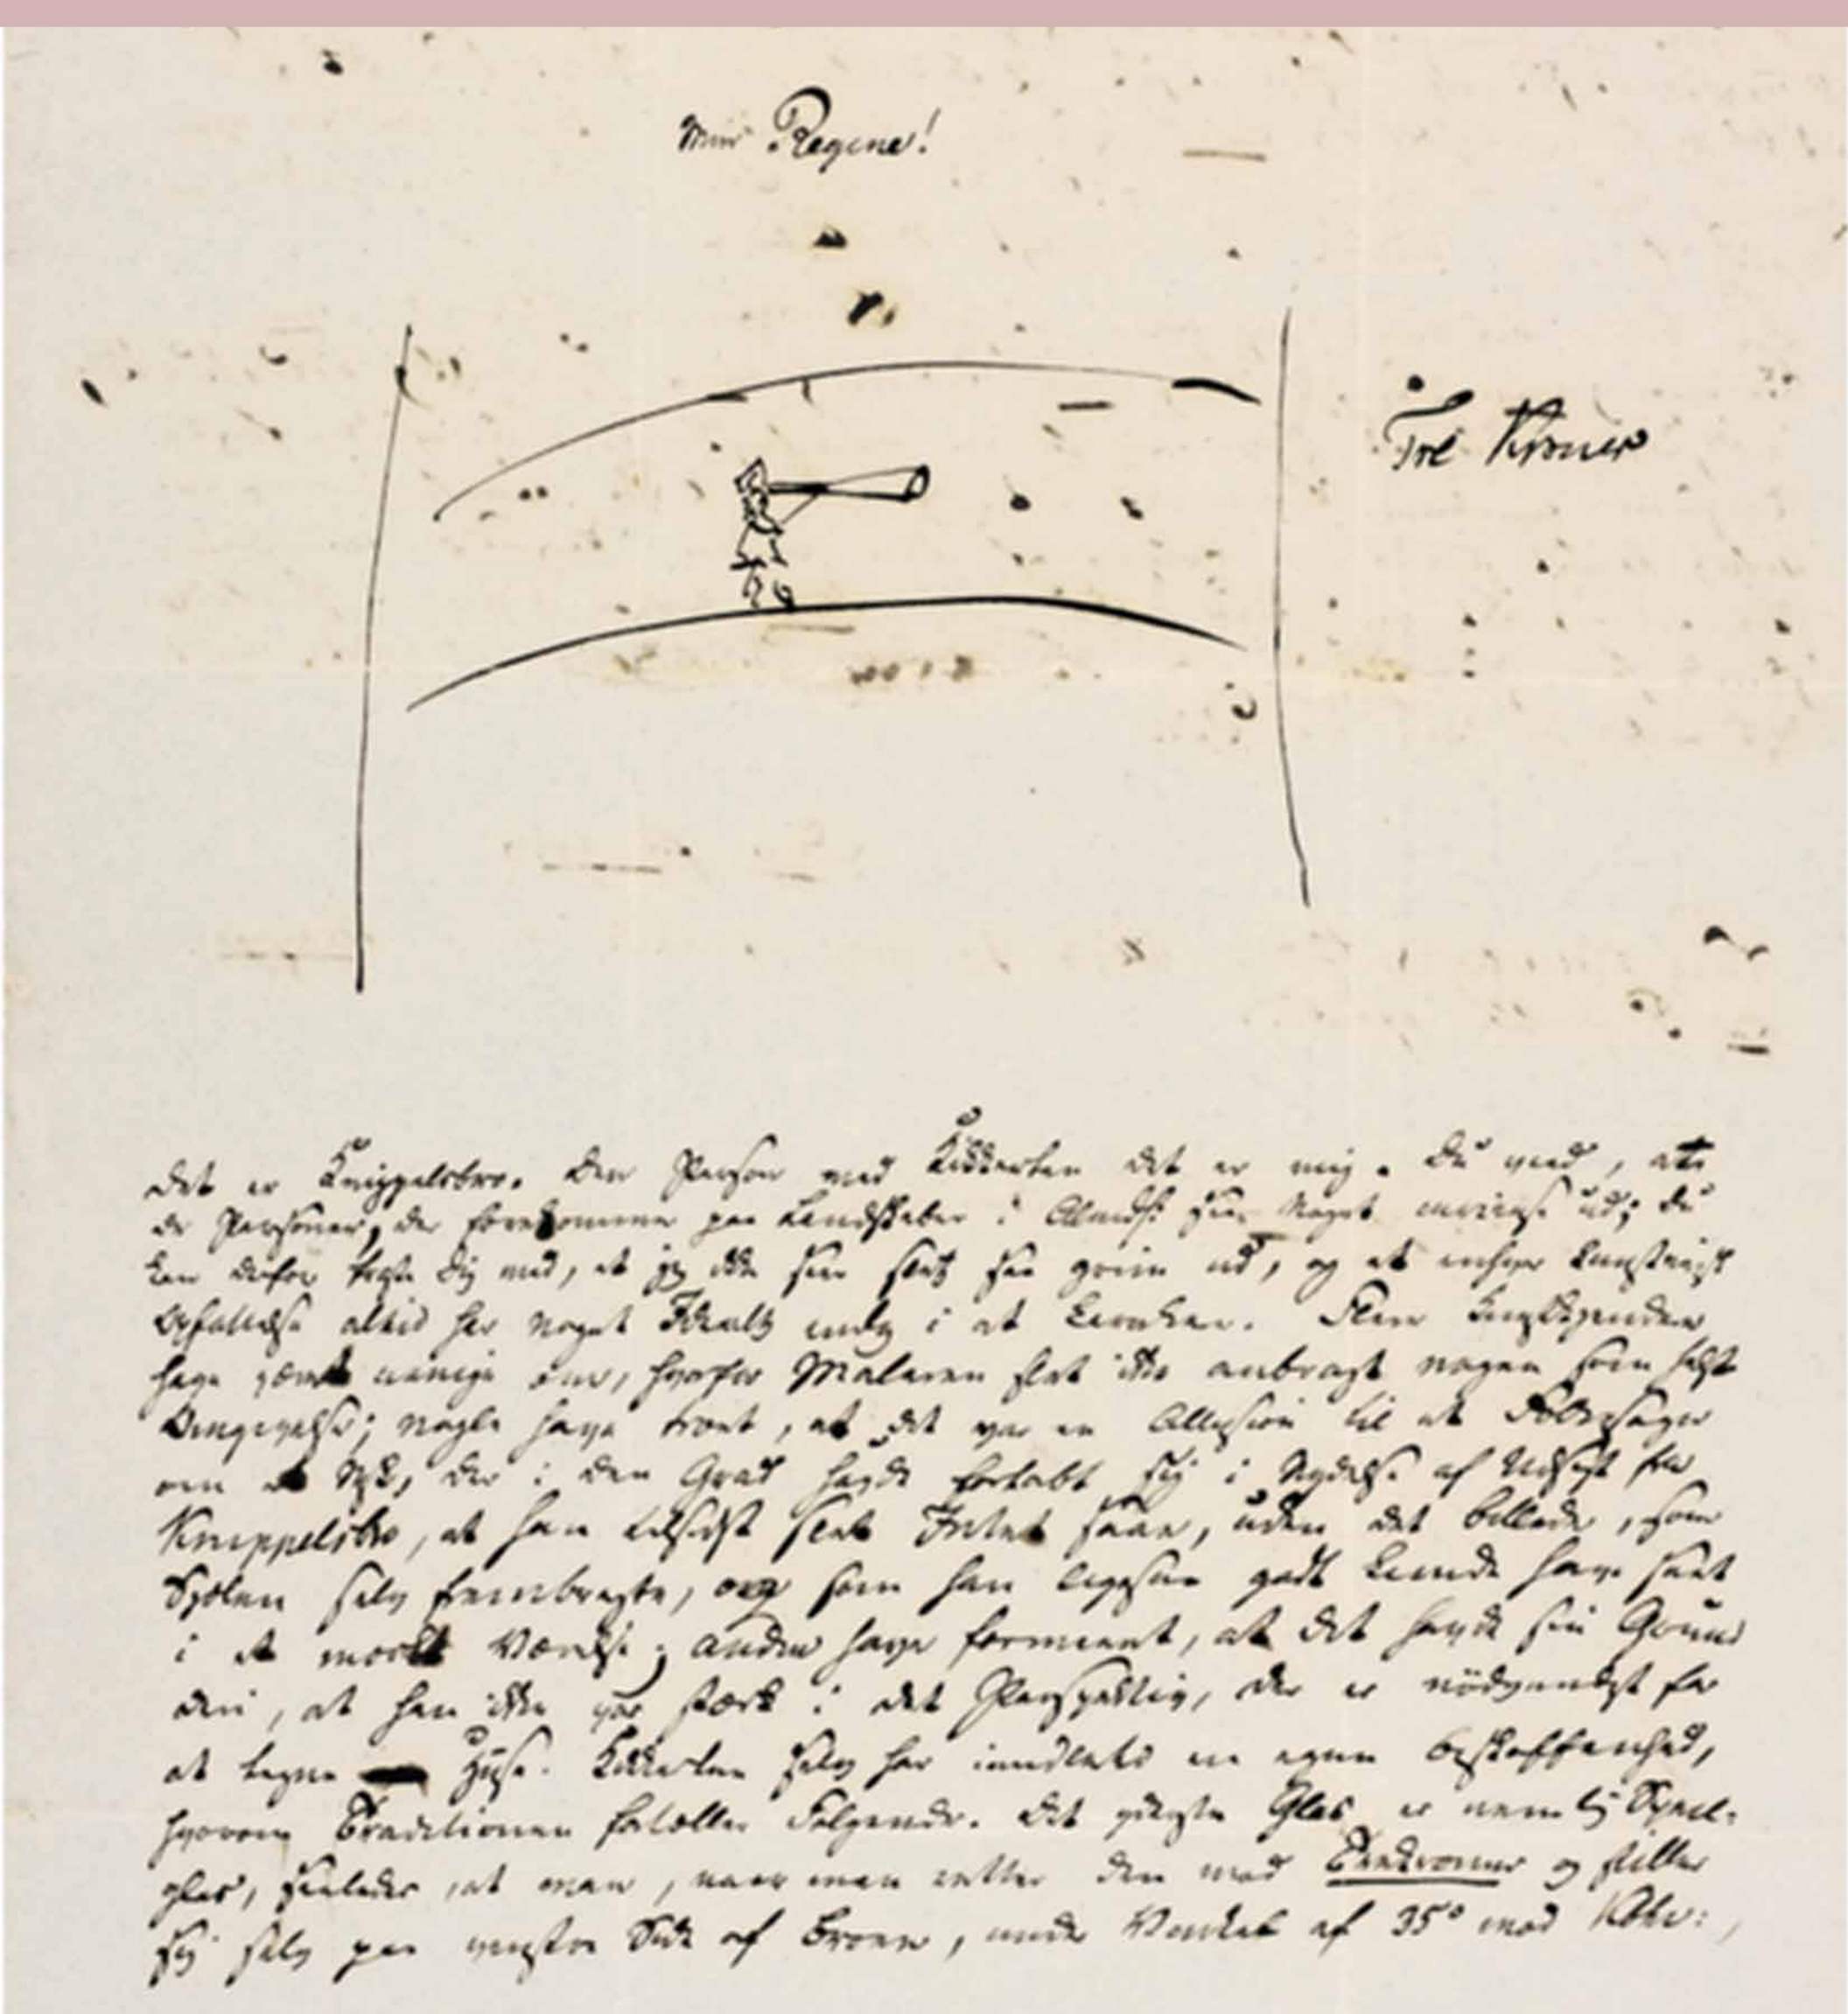 Min Regine!
Tre Kroner
Det er Knippelsbro. Den Person med Kikkerten det er mig. Du veed, at
de Personer, der forekomme paa Landskaber i Almdl: see Noget ud; Du
kan derfor trøste Dig med, at jeg ikke seer slet saa griim ud, og at enhver kunstnerisk
Opfattelse altid har noget Idealt endog i at Carrikere. Flere Kunstkjendere
have været uenige om, hvorfor Maleren slet ikke anbragt nogen som helst
Omgivelse; nogle have troet, at det var en Allusion til et Folkesagn
om et Msk, der i den Grad havde fortabt sig i Nydelse af Udsigt fra
Knippelsbro, at han tilsidst slet Intet saae, uden det Billede, som
Sjælen selv frembragte, og som han ligesaa godt kunde have seet
i et mørkt Værelse; andre have formeent, at det havde sin Grund
deri, at han ikke var stærk i det Perspektiv, der er nødvendigt for
at tegne Huse. Kikkerten selv har imidlertid en egen Beskaffenhed,
hvorom Traditionen fortæller Følgende. Det yderste Glas er nemlig Speil-
glas, saaledes, at man, naar man retter den mod Trekroner og stiller
sig selv paa venstre Side af Broen, under Vinkel af 35° mod Kbhv:,